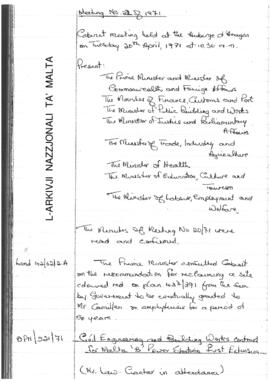 Meeting No. 21 of 1971
Cabinet meeting held at the Auberge d'Aragon
on Tuesday 20th April, 1971 at 9.30 a.m.
Present:
The Prime Minister and Minister of
Commonwealth and Foreign Affairs
The Minister of Finance, Customs and Port
The Minister of Public Building and Works
The Minister of Justice and Parliamentary
Affairs
The Minister of Trade, Industry and
Agriculture
The Minister of Health
The Minister of Education, Culture and
Tourism
The Minister of Labour, Employment and
Welfare
L-ARKIVJI NAZZJONALI TA' MALTA
The Minutes of Meeting No 20/71 were
read and confirmed.
Land 142/62/2A
The Prime Minister consulted Cabinet
on the recommendation for reclaiming a site
coloured red on plan from the sea
by Government to be eventually granted to
Mr on emphyteusis for a period of
years.
OPM/321/71
Civil Engineering and Building Works contract
for Malta 'B' Power Station First Extension
(Mr. in attendance)